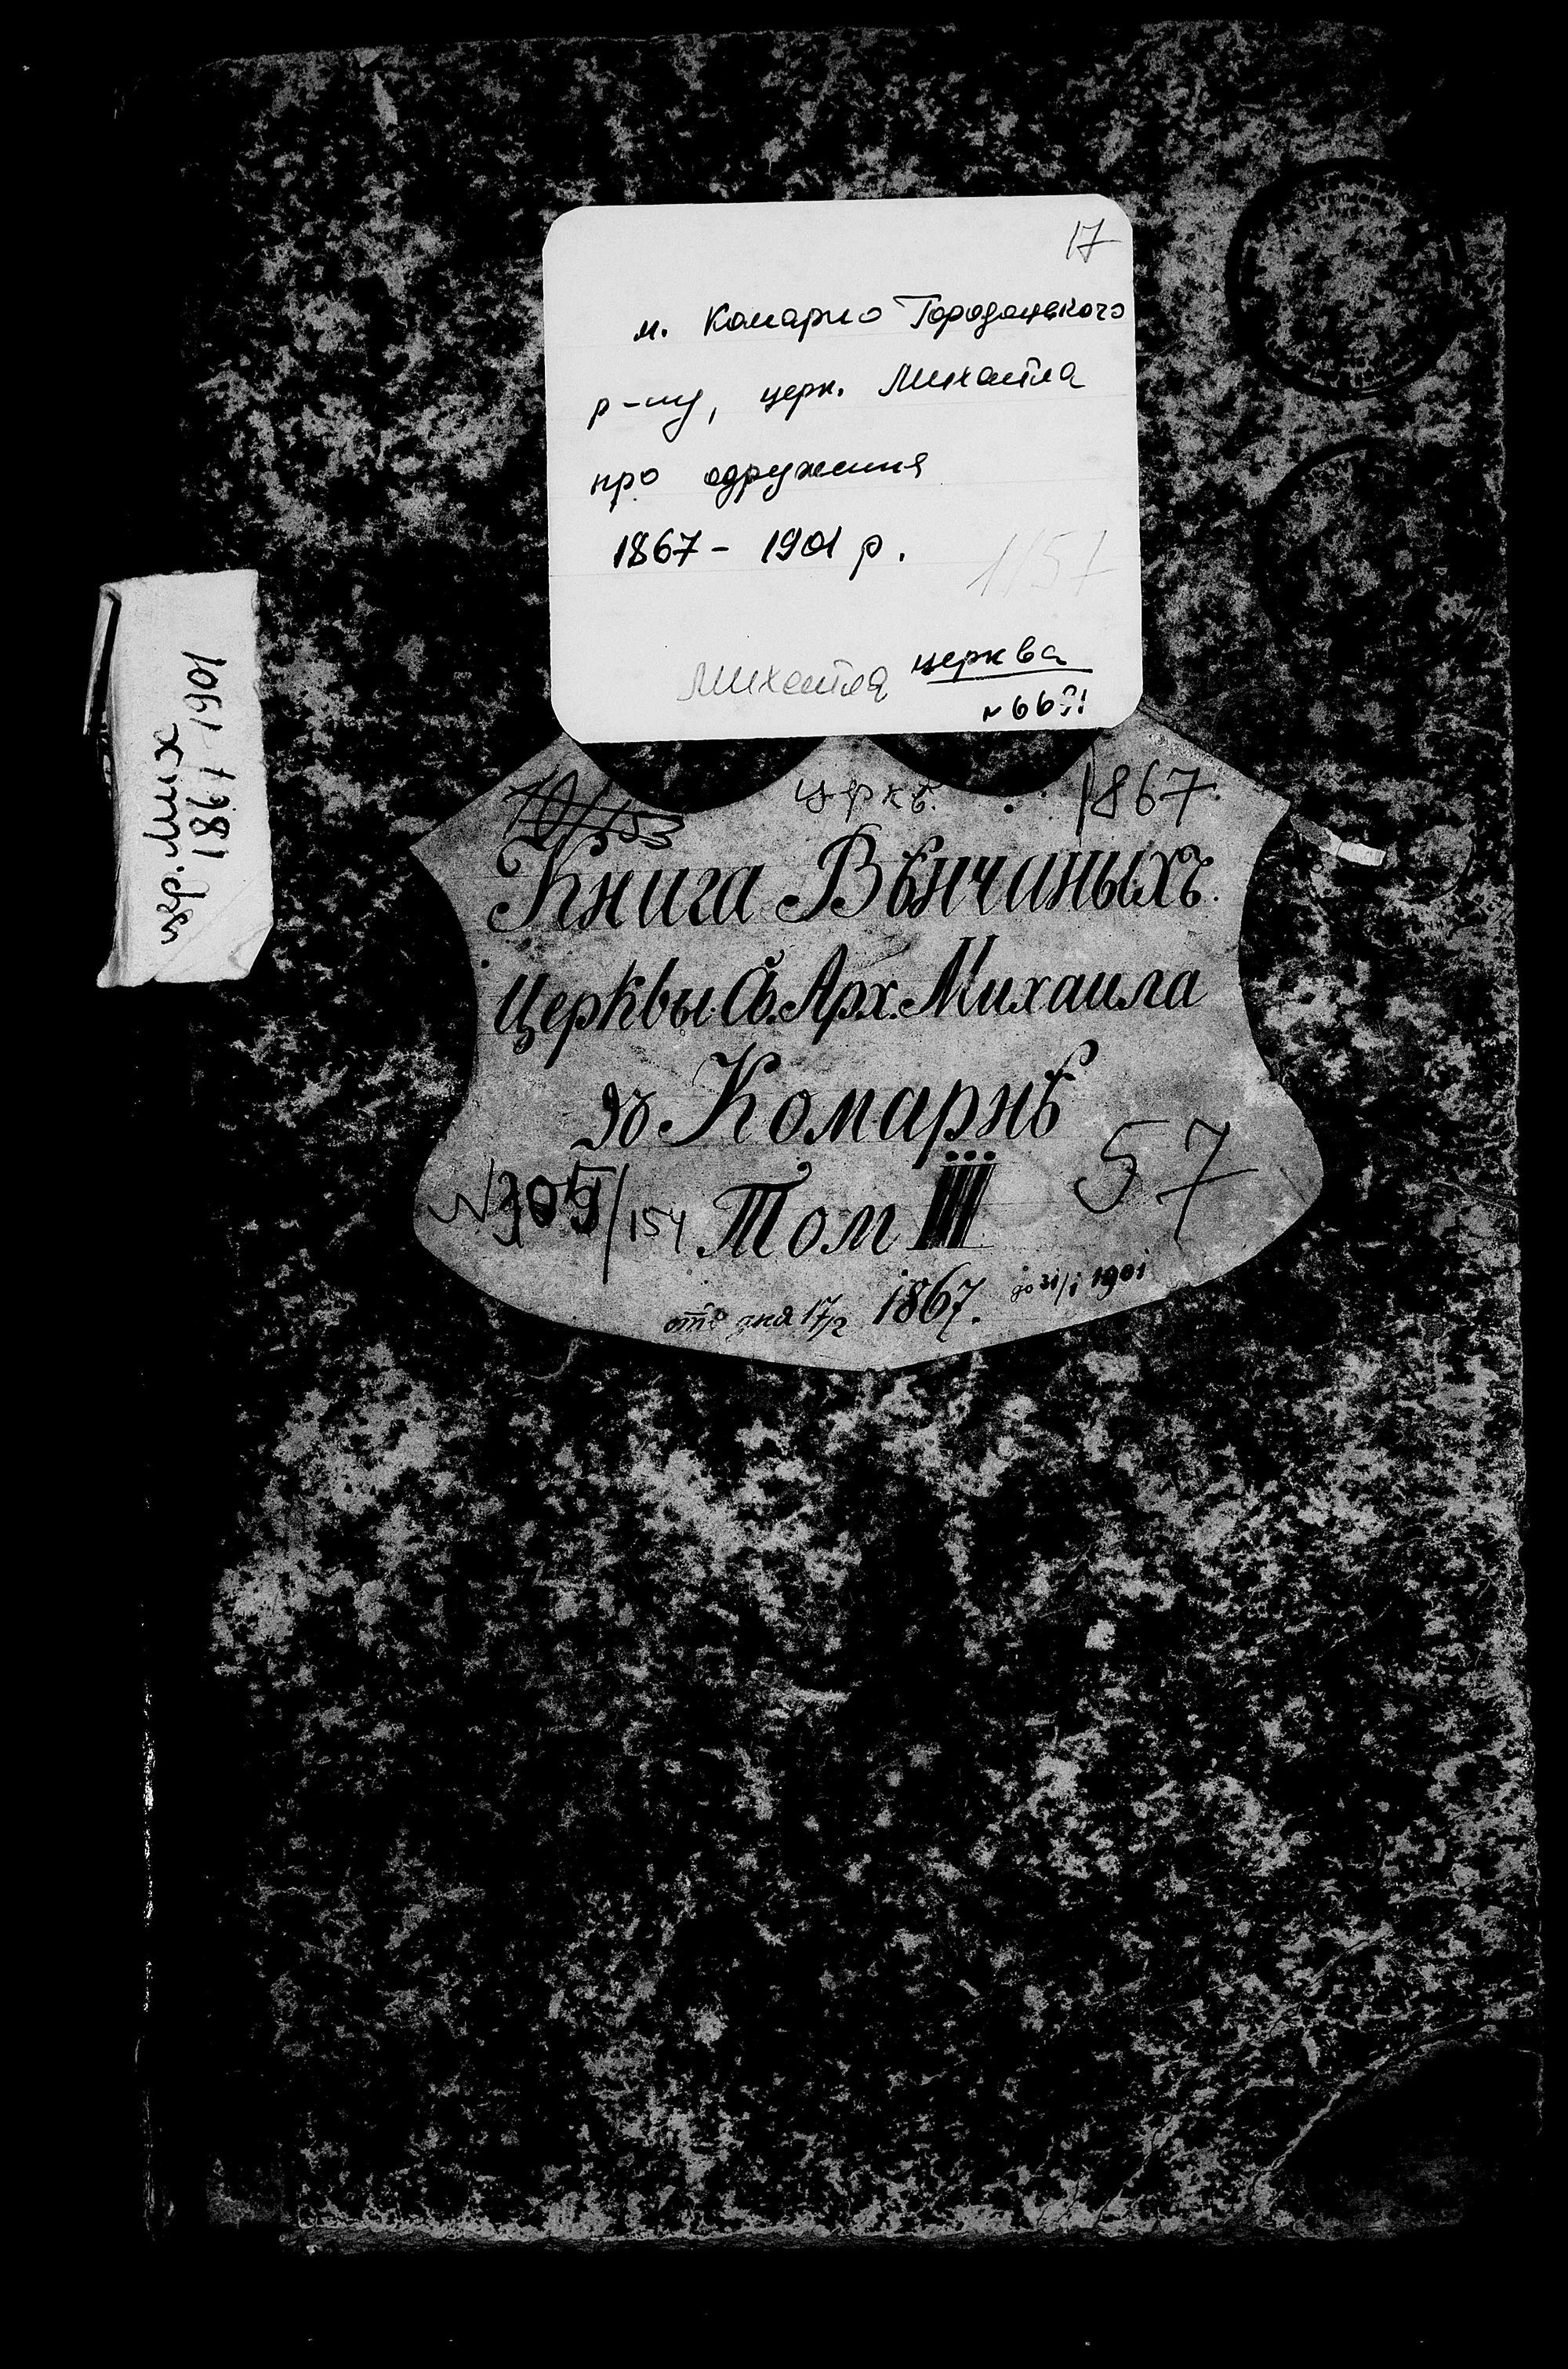 17
м. Комарно Городоцького
р-ну, церк. Михаїла
про одруження
1867 - 1901 р.
1157
Михаїла церква
цер. Мих
1867-1901
церкв. 1867
Книга Вѣнчаныхъ.
Церквы Св. Арх. Михаила
въ Комарнѣ
57
/154 Том III
отъ дня 17/2 1867. до 31/1 1901